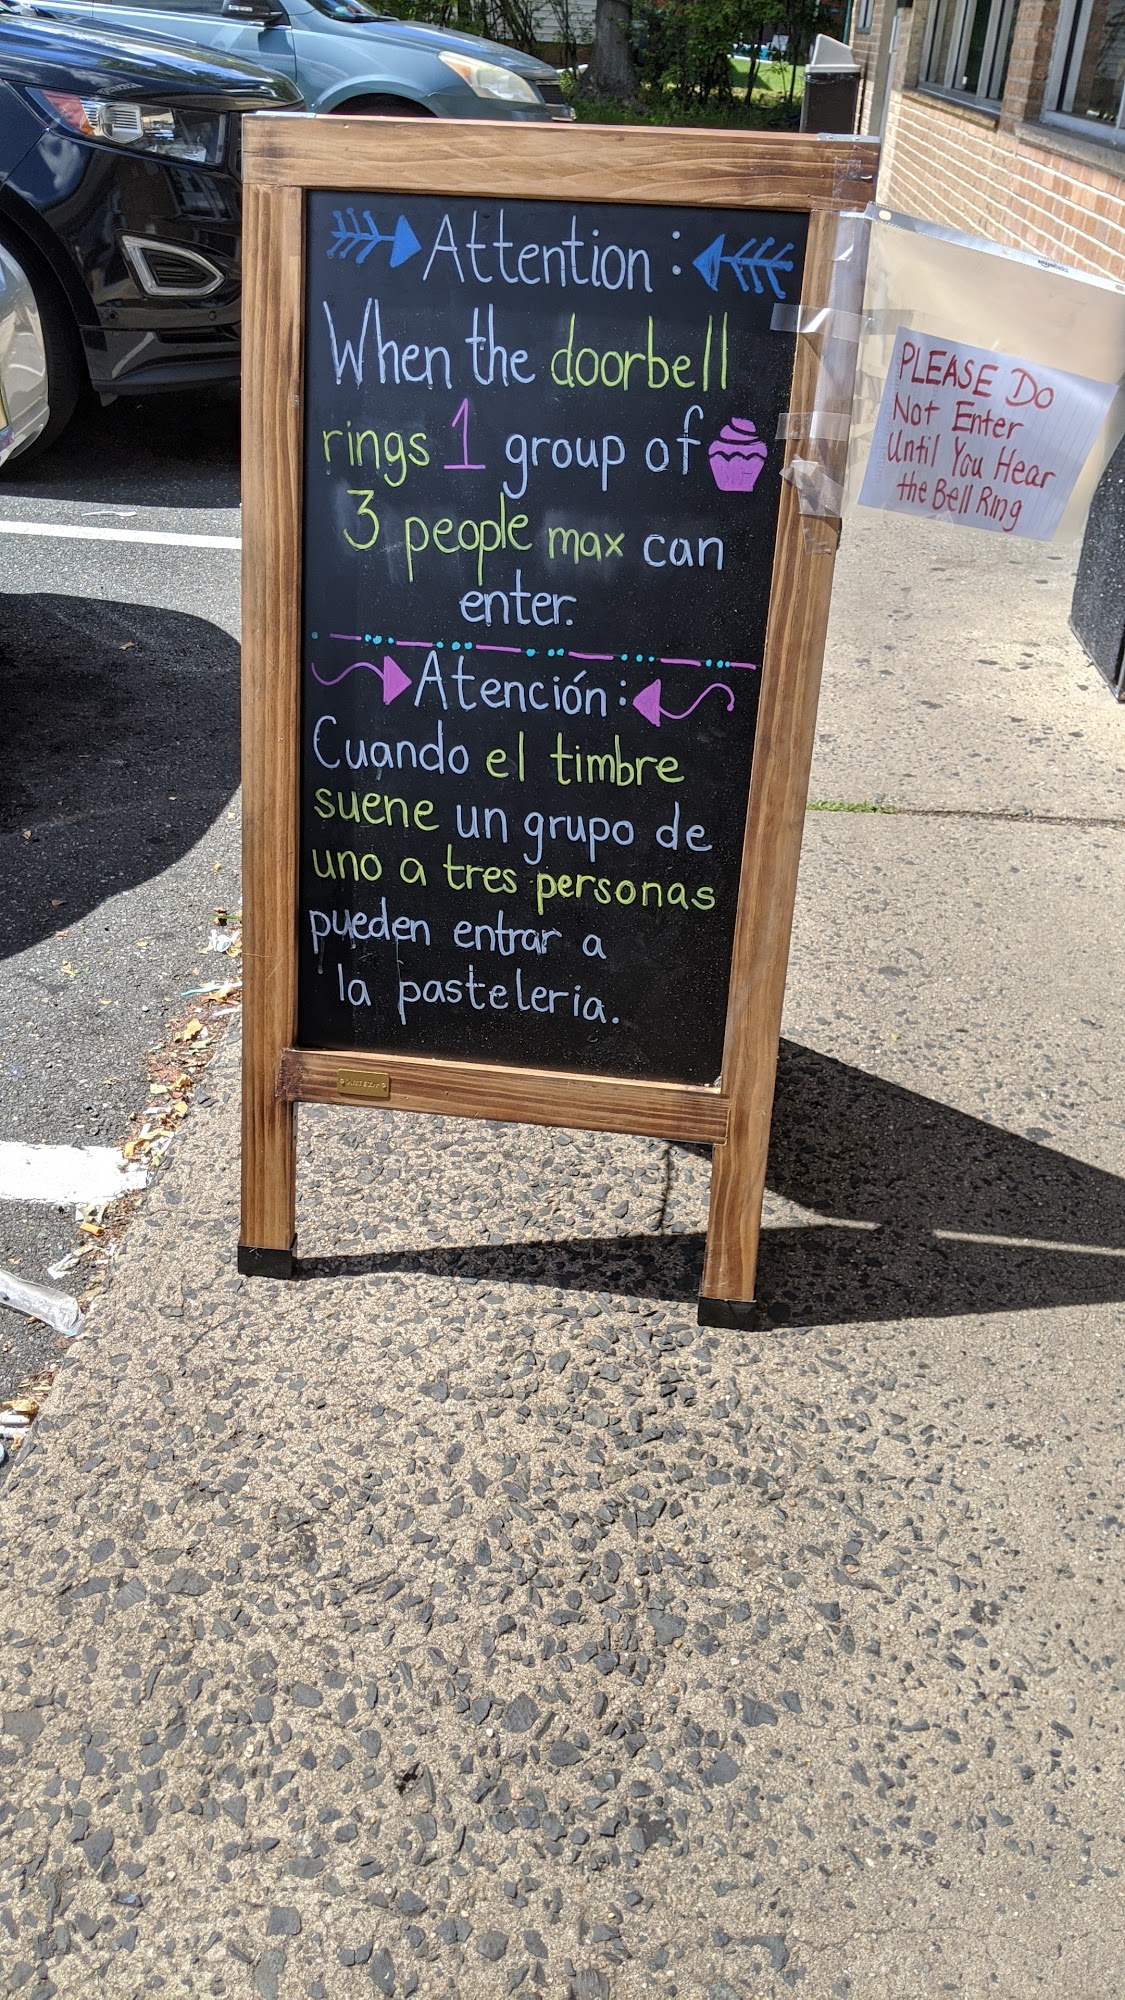 Attention:
When the doorbell
rings 1 group of
3 people max can
enter.
Atención:
Cuando el timbre
suene un grupo de
uno a tres personas
pueden entrar a
la pasteleria.
PLEASE DO
Not Enter
Until You Hear
the Bell Ring